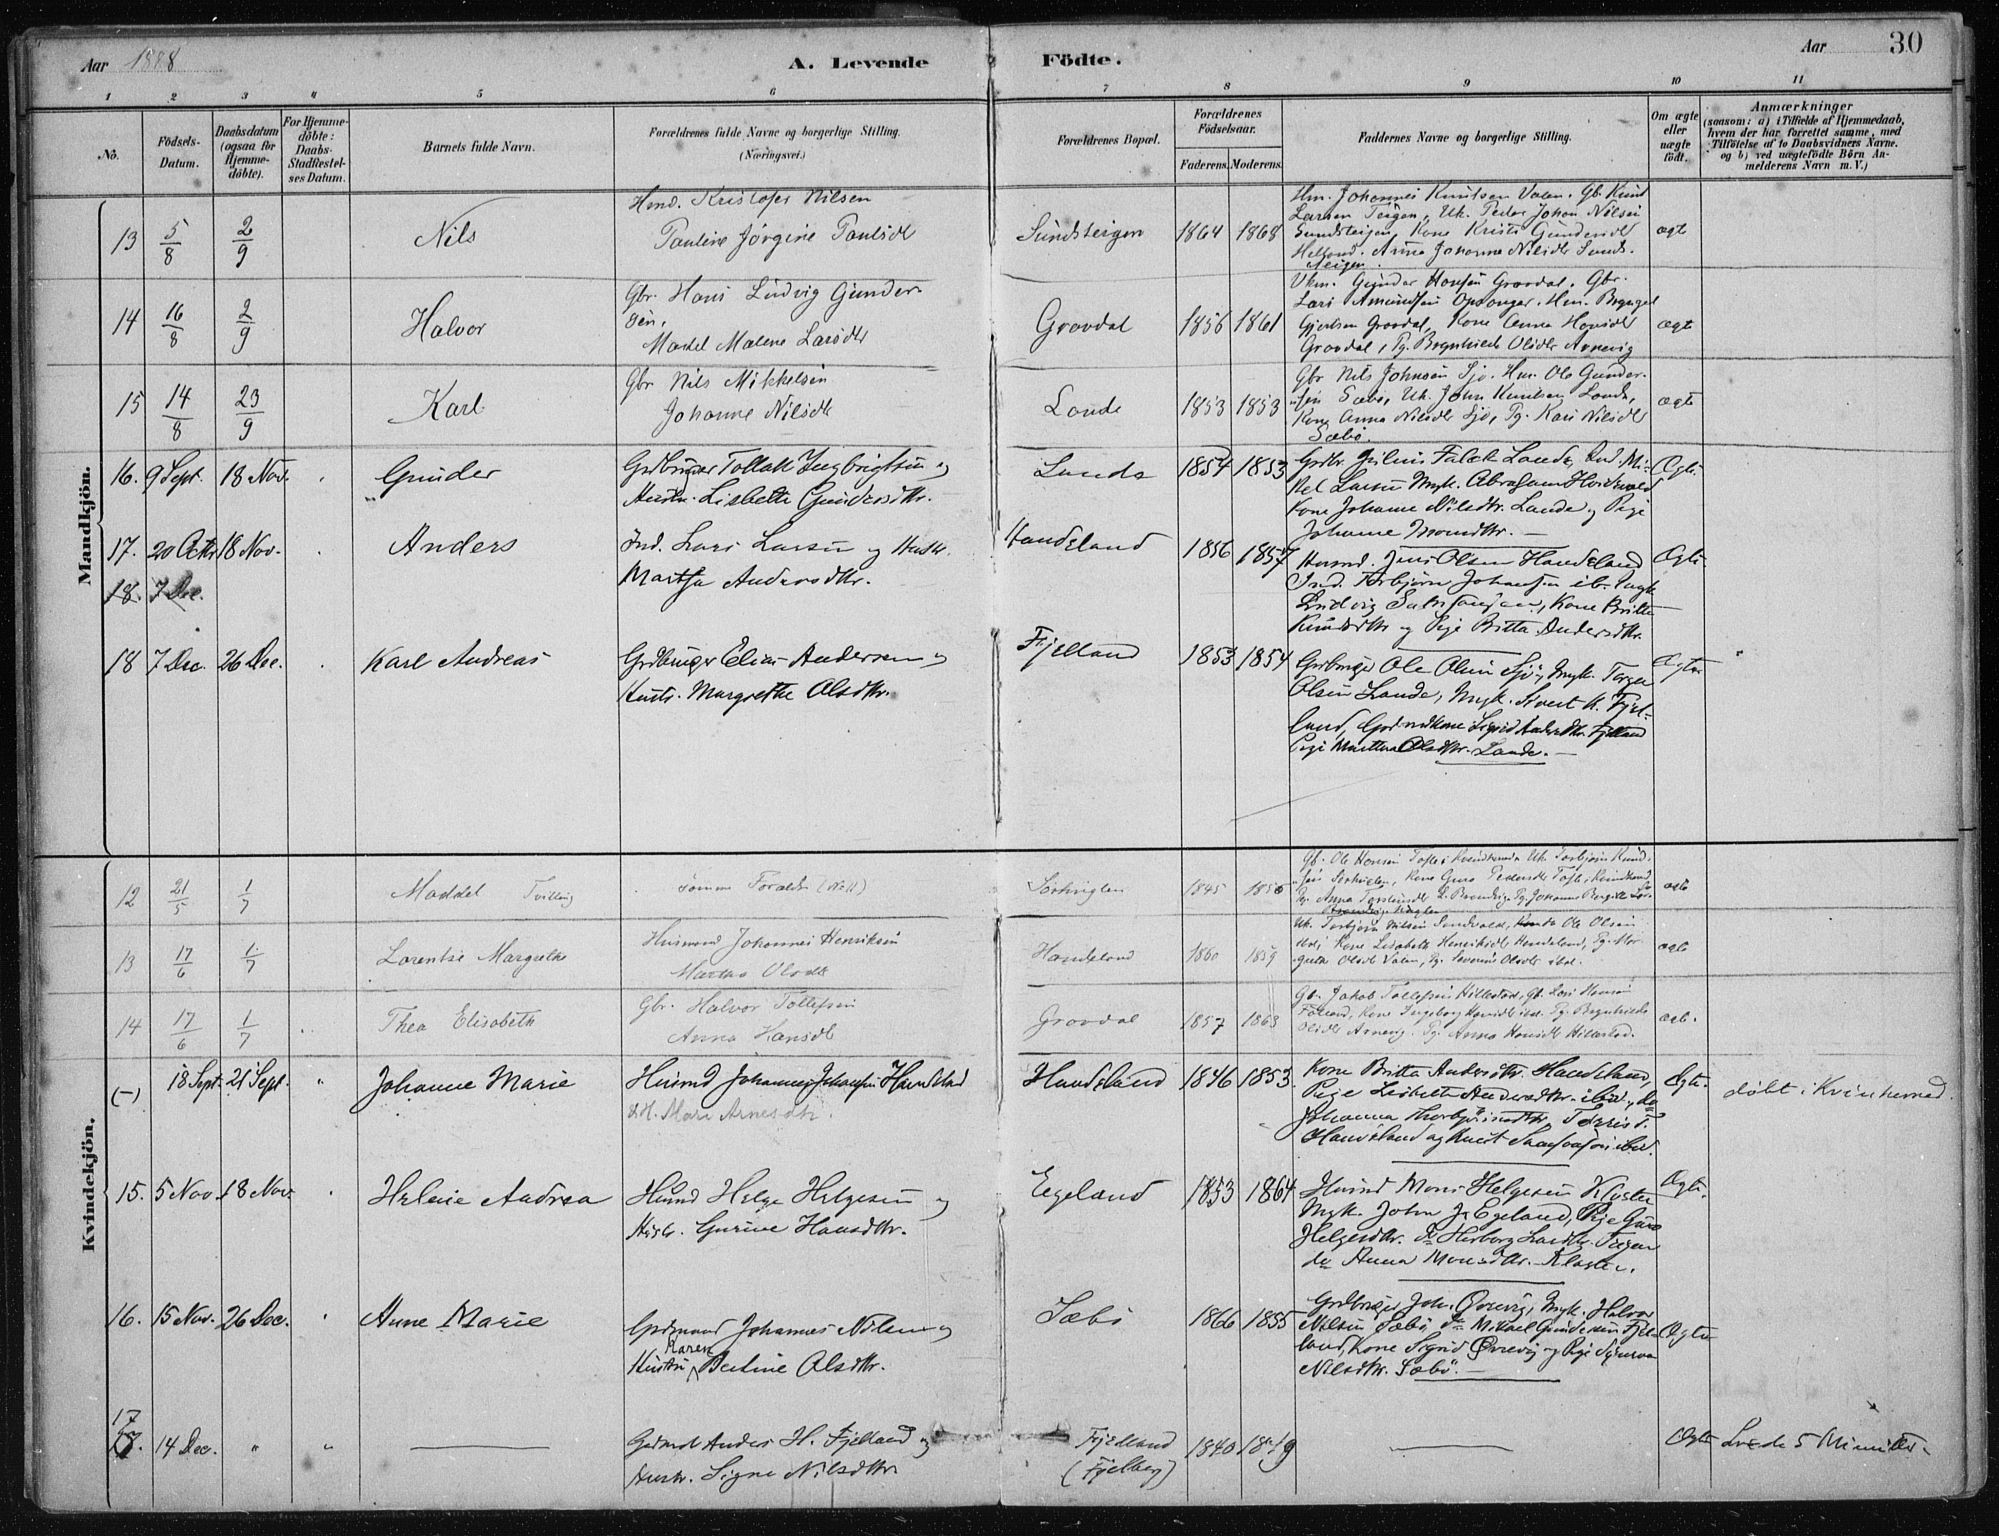 Aar 1888
A. Levende
Födte.
Aar
30
1 2 3 4 5 6 7 8 9 10 11
No.
Födsels-
Datum.
Daabsdatum
(ogsaa for
Hjemme-
döbte).
For Hjemme-
döbte:
Daabs-
Stadfæstel-
ses Datum.
Barnets fulde Navn.
Forældrenes fulde Navne og borgerlige Stilling.
(Næringsvei.)
Forældrenes Bopæl.
Forældrenes
Födselsaar.
Faderens. Moderens.
Faddernes Navne og borgerlige Stilling.
Om ægte
eller
uægte
födt.
Anmærkninger
(saasom: a) i Tilfælde af Hjemmedaab,
hvem der har forrettet samme, med
Tilföielse af to Daabsvidners Navne.
og b) ved uægtefödte Börn An-
melderens Navn m. V.)
Mandkjön.
13 5/8 2/9 Nils
Kristofer Nilsen
Pauline Jörgine Paulsdt
Sundsteigen 1864 1868
Hm. Johannes Knutsen Valen. Gb. Knud
Larsen Teigen, Uk. Peder Johan Nilsen
Sundsteigen, Kone Gundersdt
Helland. Anna Johanne Nilsdtr Sunds-
teigen.
ægte
14 16/8 2/9 Halvor
Gbr. Hans Ludvig Gunder-
sen,
Madel Malene Larsdtr
Grovdal 1856 1861
Gunder Hansen Grovdal. Gbr.
Lars Amundsen Opsanger. Hm.
Grovdal, Kone Anna Hansdtr
Grovdal, Pg. Olsdtr
ægte
15 14/8 23/9 Karl
Gbr Nils Mikkelsen
Johanne Nilsdt
Lande 1853 1853
Gbr Nils Johnsen Sjo. Hm. Ole Gunder-
sen Sæbø, Uk. John Knutsen Lande,
Kone Anna Nilsdtr Sjo, Pg. Kari Nilsdtr
Sæbø.
ægte
16. 9 Sept. 18 Nov. Gunder
Grdbruger Tollak Ingbrigtsen og
Hustr. Lisbeth Gundersdtr.
Lande 1854 1853
Grdbr. Julius Falck Lande, Ind. Mi-
kel Larsen Ungk. Abraham
Kone Johanne Nilsdtr. Lande og Pige
Johanne
Ægte
17. 20 Octbr 18 Nov. Anders
Ind. Lars Larsen og Hustr.
Martha Andersdtr.
Handeland 1856 1857
Husmd. Jens Olsen Handeland
Ind. Torbjørn Johansen ib. Ungk
Ludvig, Kone Britta
Knudsdtr og Pige Britta Andersdtr.
Ægte
18. 7 Dec.
18 7 Dec. 26 Dec. Karl Andreas
Grdbruger Elias Andersen og
Hustr. Margrethe Olsdtr.
Fjelland 1853 1854
Grdbruger Ole Olsen Sjø, Ungk. Torger
Olsen Lande, Ungk. Sivert K. Fjel-
land, Grdmdkone Sigrid Andersdtr. Fjelland
Pige Marthea Olsdtr. Lande.
Ægte
Kvindekjön.
12 21/5 1/7 Maddel Tvilling
samme Forældre (No 11)
1845 1856
Gb. Ole Hansen i Kvindherred Uk. Torbjørn Knud-
sen, Kone Guro Pedersdt i Kvindherred
Pg. Anna Torsteinsdt Pg. Johanne
ægte
13 17/6 1/7 Lorentse Margrethe
Husmand Johannes Henriksen
Martha Olsdt
Handeland 1860 1859
Uk. Torbjørn Nilsen Ole Olsen
Kone Lisabeth Henriksdt Handeland, Pg. Mar-
grete Olsdt Valen, Pg. Severine Olsdtr ibd.
ægte
14 17/6 1/7 Thea Elisabeth
Gbr. Halvor Tollefsen
Anna Hansdt
Grovdal 1857 1863
Gb. Jakob Tollefsen Hillestad, Gb. Lars Hansen
Kone Ingeborg Hansdt ibd. Pg.
Olsdt Pg. Anna Hansdt Hillestad.
ægte.
(-) 18 Sept. 21 Sept. Johanne Marie
Husmd Johannes Johansen Handeland
& H. Mari Arnesdtr.
Handeland 1846 1853
Kone Britta Andersdtr. Handeland,
Pige Lisbeth Andersdtr. ibid., do
Johanna Thorbjörnsdtr
Handeland og Knut Samsonsen ibid.
Ægte.
döbt i Kvinherred.
15. 5 Nov. 18 Nov. Helene Andrea
Husmd Helge Helgesen og
Hustr. Gurine Hansdtr.
Egeland 1853 1864
Husmd Mons Helgesen Kloster
Ungk. John J. Egeland, Pige Guro
Helgesdtr. do Herborg Larsdtr. Teigen
do Anna Monsdtr. Kloster.
Ægte.
16. 15 Nov. 26 Dec. Anne Marie
Grdmand Johannes Nilsen og
Hustru Karen Bertine Olsdtr.
Sæbø 1866 1855
Grdbruger Joh. Øvrevig, Ungk. Halvor
Nilsen Sæbø, do Mikael Gundersen Fjel-
land, Kone Sigrid Øvrevig og Pige
Nilsdtr. Sæbø.
Ægte
17 14 Dec. " "
Grdmd Anders H. Fjelland og
Hustr. Signe Nilsdtr
Fjelland
(Fjelberg)
1840 1849
Ægte
Levede 5 Minutter.